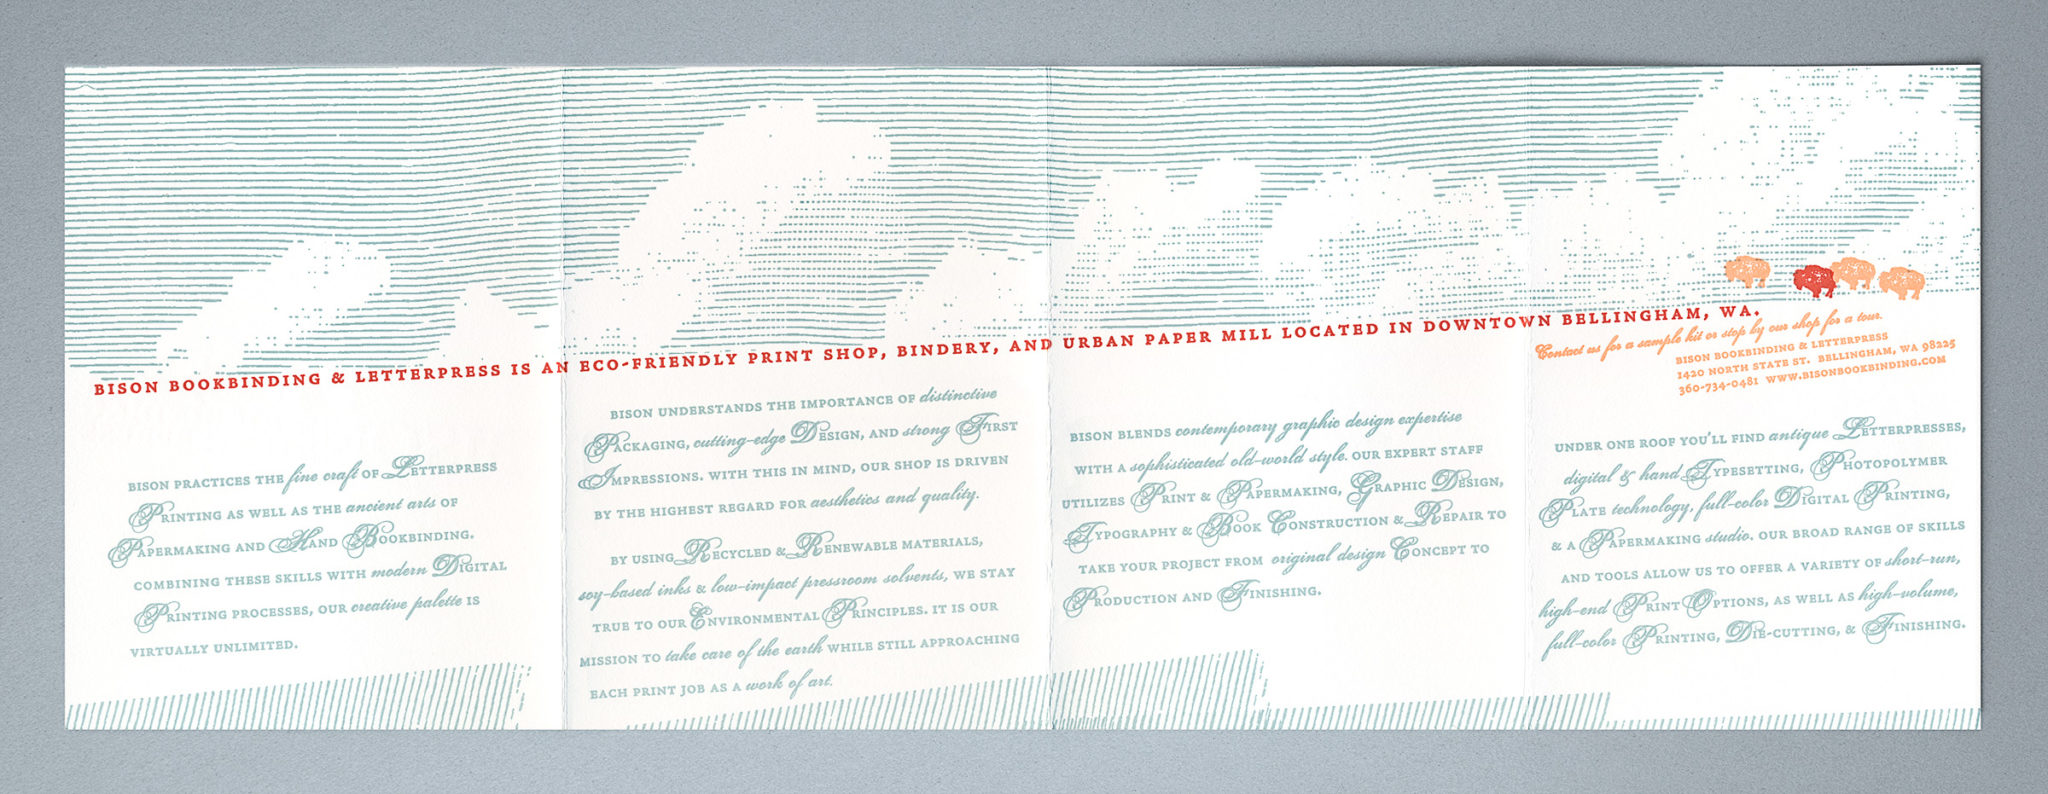 BISON BOOKBINDING & LETTERPRESS IS AN ECO-FRIENDLY PRINT SHOP, BINDERY, AND URBAN PAPER MILL LOCATED IN DOWNTOWN BELLINGHAM, WA.
Contact us for a sample kit or stop by our shop for a tour.
BISON BOOKBINDING & LETTERPRESS
1420 NORTH STATE ST. BELLINGHAM, WA 98225
360-734-0481 WWW.BISONBOOKBINDING.COM
BISON PRACTICES THE fine craft OF LETTERPRESS
PRINTING AS WELL AS THE ancient arts OF
PAPERMAKING AND HAND BOOKBINDING.
COMBINING THESE SKILLS WITH modern DIGITAL
PRINTING PROCESSES, OUR creative palette IS
VIRTUALLY UNLIMITED.
BISON UNDERSTANDS THE IMPORTANCE OF distinctive
PACKAGING, cutting-edge DESIGN, AND strong FIRST
IMPRESSIONS. WITH THIS IN MIND, OUR SHOP IS DRIVEN
BY THE HIGHEST REGARD FOR aesthetics and quality.
BY USING RECYCLED & RENEWABLE MATERIALS,
soy-based inks & low-impact pressroom solvents, WE STAY
TRUE TO OUR ENVIRONMENTAL PRINCIPLES. IT IS OUR
MISSION TO take care of the earth WHILE STILL APPROACHING
EACH PRINT JOB AS A work of art.
BISON BLENDS contemporary graphic design expertise
WITH A sophisticated old-world style. OUR EXPERT STAFF
UTILIZES PRINT & PAPERMAKING, GRAPHIC DESIGN,
TYPOGRAPHY & BOOK CONSTRUCTION & REPAIR TO
TAKE YOUR PROJECT FROM original design CONCEPT TO
PRODUCTION AND FINISHING.
UNDER ONE ROOF YOU'LL FIND antique LETTERPRESSES,
digital & hand TYPESETTING, PHOTOPOLYMER
PLATE technology, full-color DIGITAL PRINTING,
& A PAPERMAKING studio. OUR BROAD RANGE OF SKILLS
AND TOOLS ALLOW US TO OFFER A VARIETY OF short-run,
high-end PRINT OPTIONS, AS WELL AS high-volume,
full-color PRINTING, DIE-CUTTING, & FINISHING.